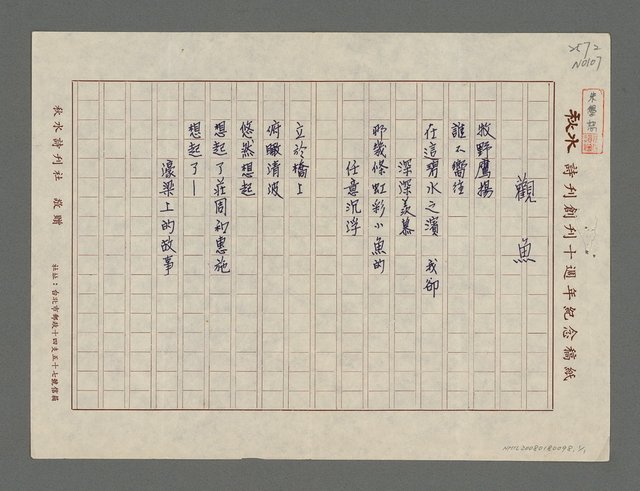 2572
N0107
秋水 詩刊創刊十週年紀念稿紙
觀魚
牧野鷹揚
誰不嚮往
在這勞水之濱 我卻
深深羨慕
那幾條虹彩小魚的
任意沉浮
立於橋上
俯瞰清波
悠然想起
想起了莊周和惠施
想起了—
濠梁上的故事
秋水詩刊社 敬贈
社址：台北市郵政十四支五十七號信箱
NMTL20080180098. 1/1